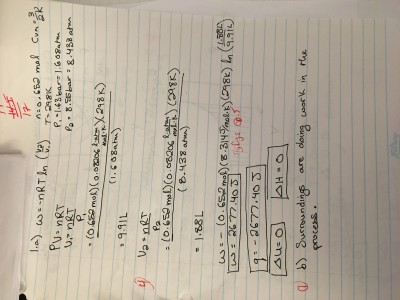 1.a) ω = -nRT ln (V₂/V₁)
n = 0.652 mol Cvm = 3/2 R
T = 298K
P₁ = 1.63 bar = 1.608 atm
P₂ = 8.55 bar = 8.438 atm
PV = nRT
V₁ = nRT/P₁
= (0.652 mol)(0.08206 L·atm/mol·K)(298K)/(1.608 atm)
= 9.91 L
V₂ = nRT/P₂
= (0.652 mol)(0.08206 L·atm/mol·K)(298K)/(8.438 atm)
= 1.88 L
ω = -(0.652 mol)(8.314 J/mol·K)(298K) ln (1.88L/9.91L)
ω = 2677.40 J
q = -2677.40 J
ΔU = 0 ΔH = 0
b) Surroundings are doing work in the
process.